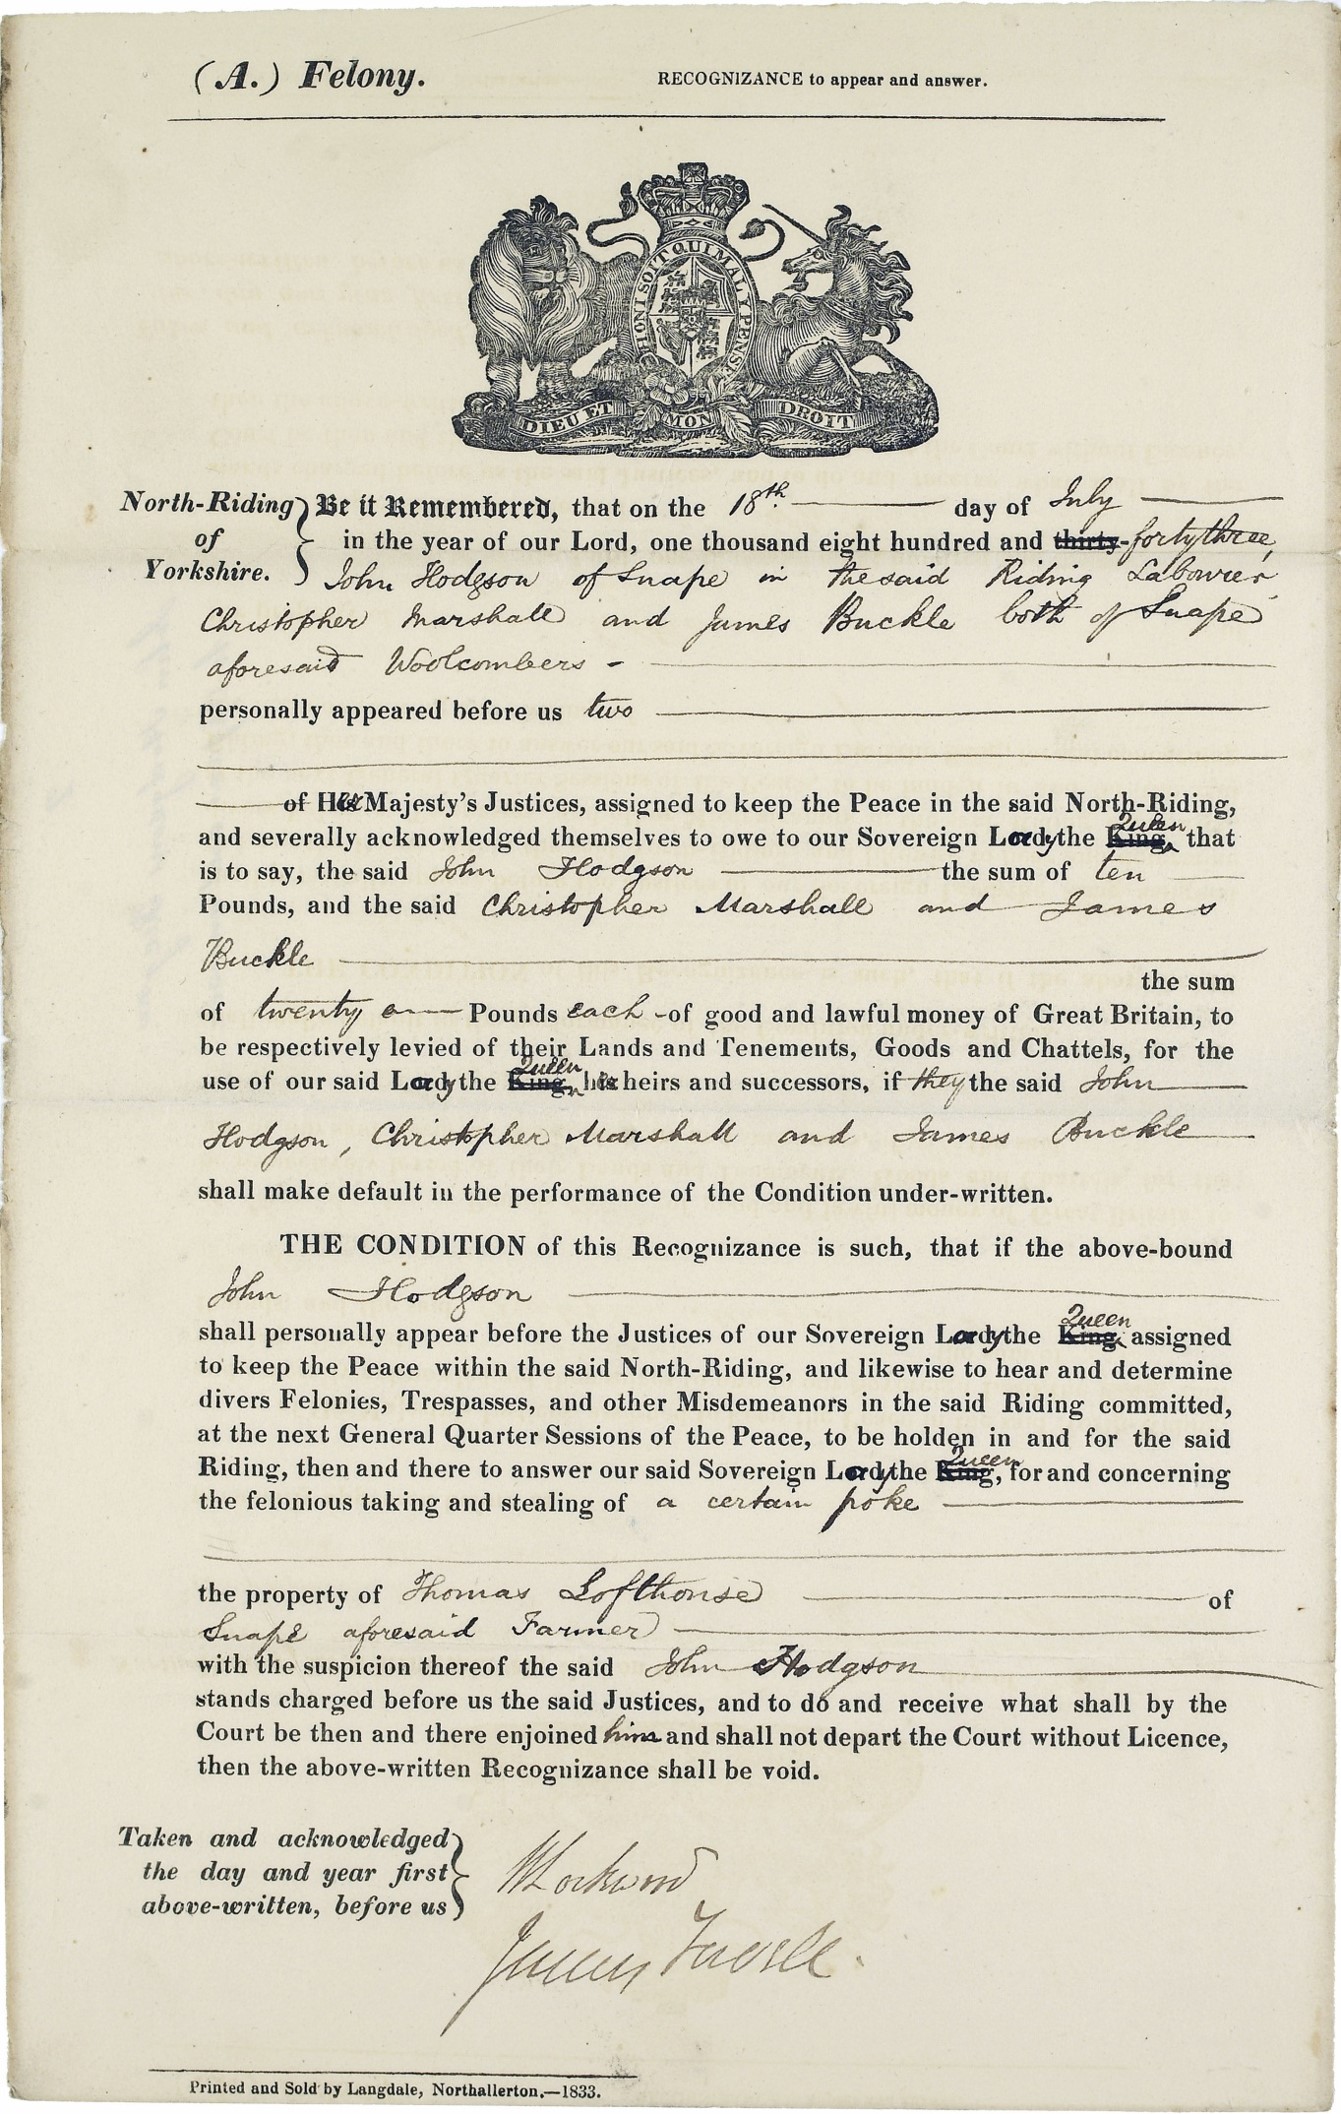 (A.) Felony. RECOGNIZANCE to appear and answer.
HONI SOIT QUI MAL Y PENSE
DIEU ET MON DROIT
North-Riding of Yorkshire.
Be it Remembered, that on the 18th. day of July
in the year of our Lord, one thousand eight hundred and thirty-forty three,
John Hodgson of Snape in the said Riding Labourer
Christopher Marshall and James Buckle both of Snape
aforesaid Woolcombers -
personally appeared before us two
of Her Majesty's Justices, assigned to keep the Peace in the said North-Riding,
and severally acknowledged themselves to owe to our Sovereign Lady the King, Queen that
is to say, the said John Hodgson the sum of ten
Pounds, and the said Christopher Marshall and James
Buckle
the sum
of twenty Pounds each - of good and lawful money of Great Britain, to
be respectively levied of their Lands and Tenements, Goods and Chattels, for the
use of our said Lady the King, Queen her heirs and successors, if they the said John
Hodgson, Christopher Marshall and James Buckle
shall make default in the performance of the Condition under-written.
THE CONDITION of this Recognizance is such, that if the above-bound
John Hodgson
shall personally appear before the Justices of our Sovereign Lady the King, Queen assigned
to keep the Peace within the said North-Riding, and likewise to hear and determine
divers Felonies, Trespasses, and other Misdemeanors in the said Riding committed,
at the next General Quarter Sessions of the Peace, to be holden in and for the said
Riding, then and there to answer our said Sovereign Lady the King, Queen for and concerning
the felonious taking and stealing of a certain poke
the property of Thomas Lofthouse of
Snape aforesaid Farmer
with the suspicion thereof the said John Hodgson
stands charged before us the said Justices, and to do and receive what shall by the
Court be then and there enjoined him and shall not depart the Court without Licence,
then the above-written Recognizance shall be void.
Taken and acknowledged
the day and year first
above-written, before us
Lockwood
Printed and Sold by Langdale, Northallerton.—1833.